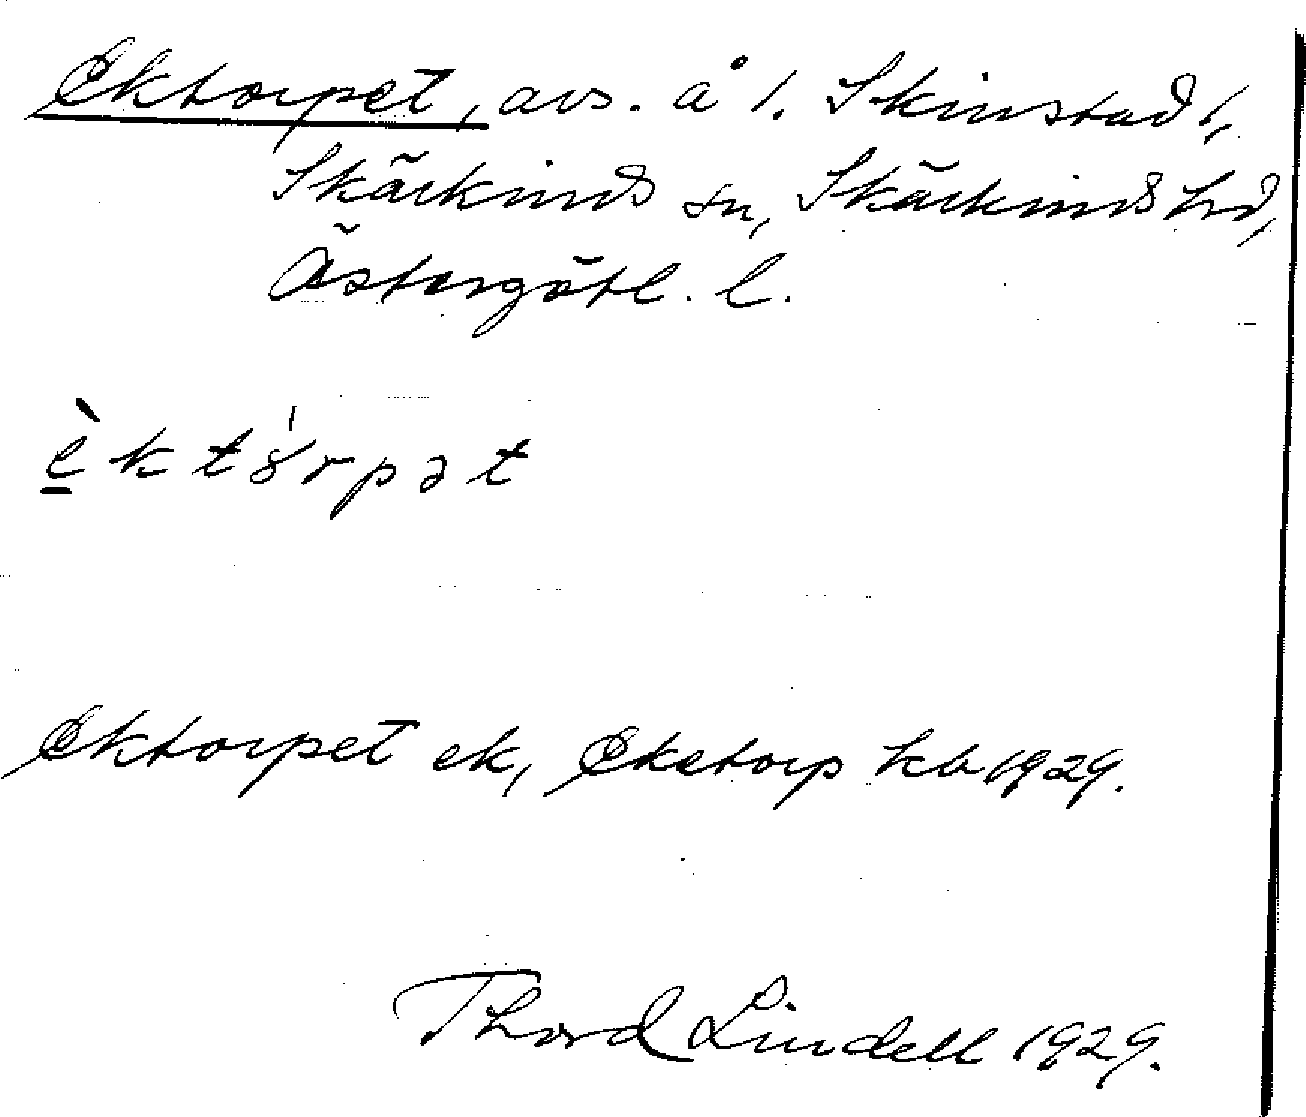 Ektorpet, avs. å 1. Skinstad 1,
Skärkinds sn, Skärkinds hd,
Östergötl. l.
èktȣ́rpət
Ektorpet ek, Eketorp kb 1929.
Thord Lindell 1929.